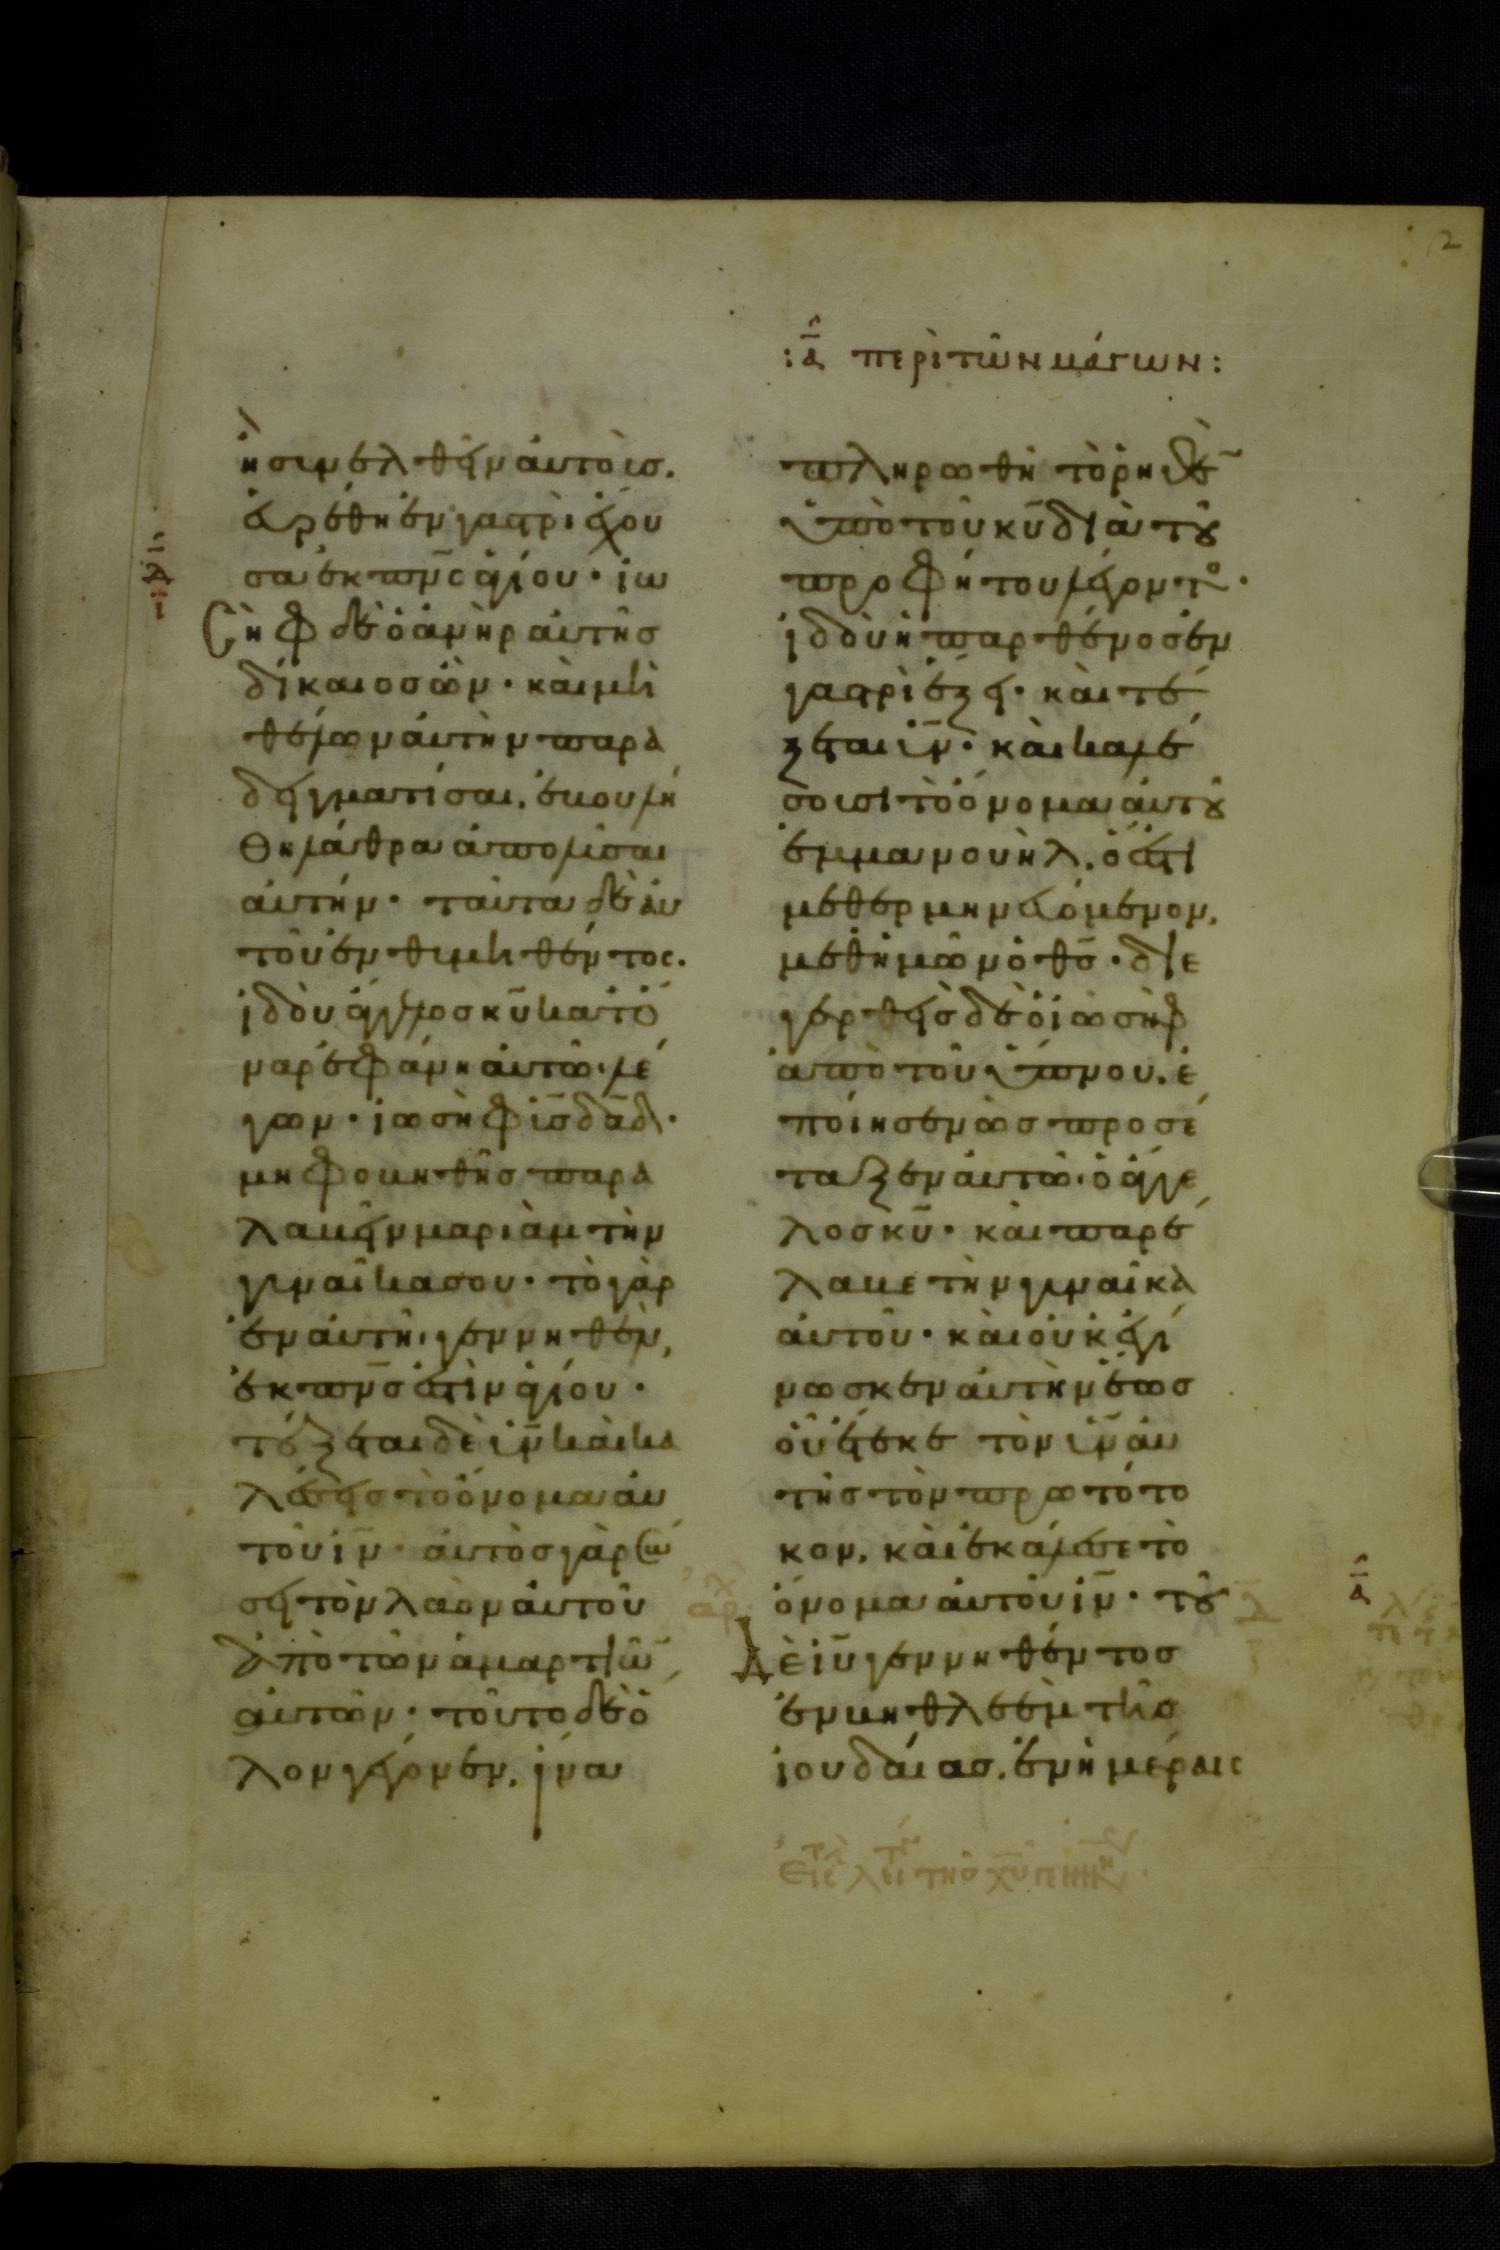 2
:ᾱ περὶ τῶν μάγων:
ἢ συνελθεῖν αὐτοὺσ.
εὑρέθη ἐν γαστρὶ ἔχου
σα ἐκ πν̅ς ἁγίου· ἰω
σὴφ δὲ ὁ ἀνὴρ αὐτῆσ
δίκαιοσ ὢν· καὶ μὴ
θέλων αὐτὴν παρα
δειγματίσαι, ἐβουλή
θη λάθρα ἀπολῦσαι
αὐτήν· ταῦτα δὲ αὐ
τοῦ ἐνθυμηθέντος.
ἰδοὺ ἄγγελοσ κ̅υ̅ κατ ὄ
ναρ ἐφάνη αὐτῶ· λέ
γων· ἰωσὴφ υἱ̅σ̅ δ̅α̅δ̅·
μὴ φοβηθῆσ παρα
λαβεῖν μαριὰμ τὴν
γυναῖκα σου· τὸ γὰρ
ἐν αὐτῆ γεννηθὲν,
ἐκ πν̅σ ἐστὶν ἁγίου·
τέξεται δὲ υἱ̅ν̅ καὶ κα
λέσεισ τὸ ὄνομα αὐ
τοῦ ι̅ν̅· αὐτὸσ γὰρ σώ
σει τὸν λαὸν αὐτοῦ
ἀπὸ τῶν ἁμαρτιῶ̅
αὐτῶν· τοῦτο δὲ ὅ
λον γέγονεν, ἵνα
πληρωθῆ τὸ ῥηθὲ̅
ὑπὸ τοῦ κ̅υ̅ διὰ τοῦ
προφήτου λέγοντο·
ἰδοὺ ἡ παρθένοσ ἐν
γαστρὶ ἕξει· καὶ τέ
ξεται υἱ̅ν̅· καὶ καλέ
σουσι τὸ ὄνομα αὐτοῦ
ἐμμανουὴλ, ὅ ἐστι
μεθερμηνευόμενον,
μεθ ἡμῶν ὁ θ̅σ̅· διε
γερθεὶσ δὲ ὁ ἰωσὴφ
ἀπὸ τοῦ ὕπνου, ἐ
ποίησεν ὡσ προσέ
ταξεν αὐτῶ· ὁ ἄγγε
λοσ κ̅υ̅· καὶ παρέ
λαβε τὴν γυναῖκα
αὐτοῦ· καὶ οὐκ ἐγί
νωσκεν αὐτὴν ἕωσ
οὗ ἔτεκε τὸν υἱ̅ν̅ αὐ
τῆσ τὸν πρωτότο
κον, καὶ ἐκάλεσε τὸ
ὄνομα αὐτοῦ ι̅ν̅· τοῦ
Δὲ ι̅υ̅ γεννηθέντοσ
ἐν βηθλεὲμ τῆσ
ἰουδαίασ, ἐν ἡμέραις
ᾱ